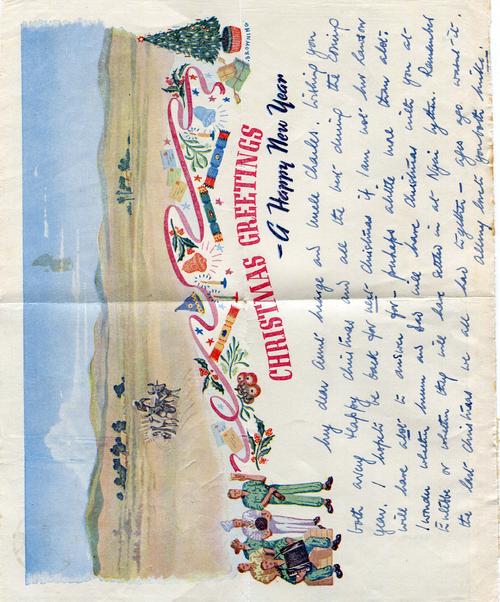 BROWNING
CHRISTMAS GREETINGS
—A Happy New Year
My dear Aunt and Uncle Charles. Wishing you
both every Happy Christmas and all the best during the coming
year. I hope to be back for next Christmas if I am not but
will have a lot to answer for – perhaps more than a lot.
I wonder whether Mum and Dad will have Christmas with you at
or whether they will have settled in at together. Remember
the last Christmas we all had together – ages ago wasn't it.
love both. Mike.